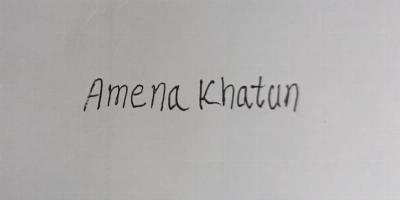 Amena Khatun